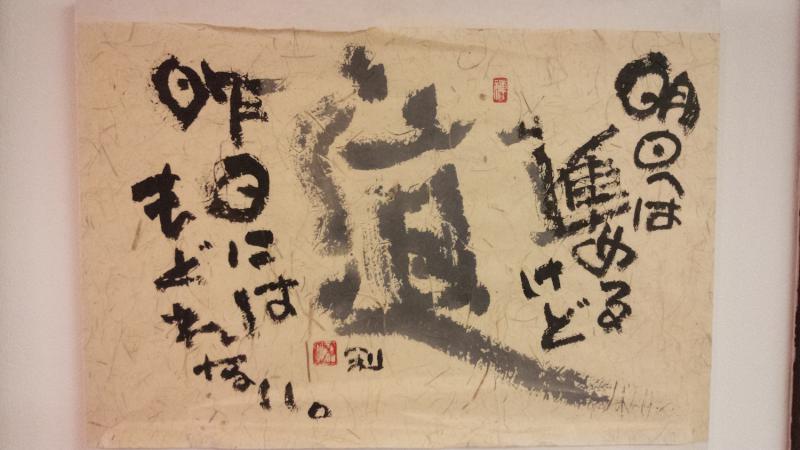 明日へは
進める
けど
道
昨日には
もどれない。